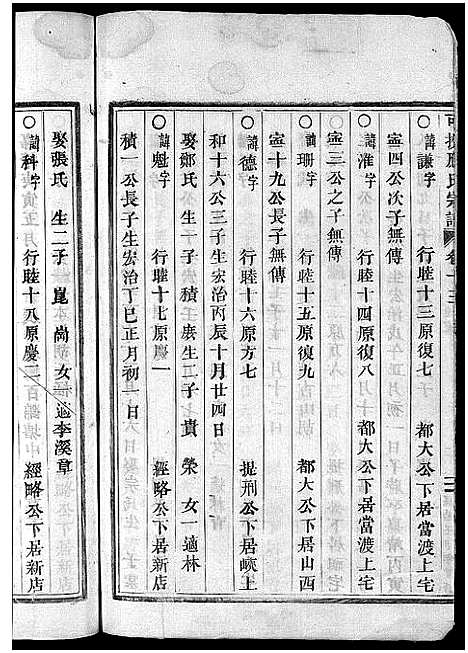 應氏宗譜 卷十三
○諱謙字 行睦十三原復七 都大公下居當渡上宅
寧四公次子無傳
○諱淮字 行睦十四原復八 都大公下居當渡上宅
寧二公之子無傳
○諱珊字 行睦十五原復九 都大公下居山西
寧十九公長子無傳
○諱德字 行睦十六原方七 提刑公下居峽上
和十六公三子生宏治丙辰十月廿四日
娶鄭氏 生一子 積 庶生二子 貴 榮 女一適林
○諱魁字 行睦十七原慶一 經略公下居新店
積一公長子生宏治丁巳正月初一日
娶張氏 生二子 崑 崗 女一適李溪章
○諱科字 行睦十八原慶二 經略公下居新店